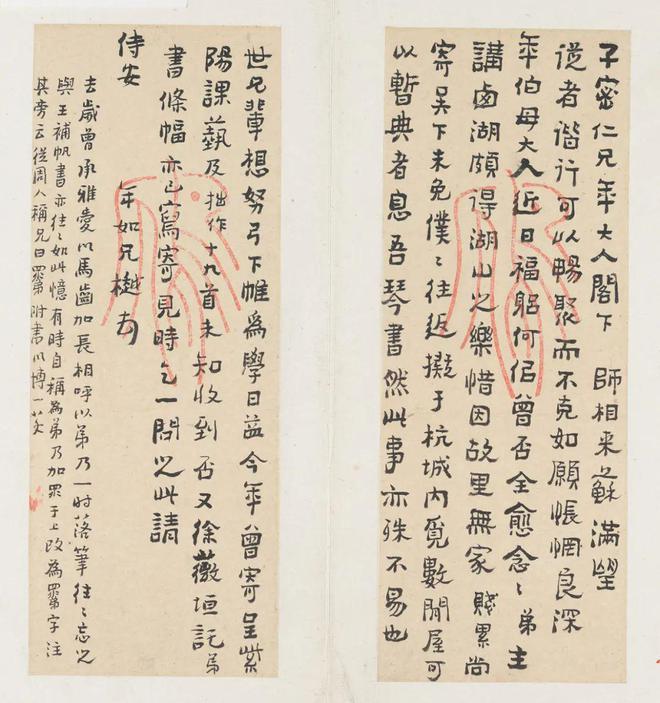 子密仁兄年大人閣下 師相来蘇滿望
從者偕行可以暢聚而不克如願悵惘良深
年伯母大人近日福躬何佀曾否全愈念〻弟主
講鹵湖頗得湖山之樂惜因故里無家賤累尚
寄吳下未免僕〻往返擬于杭城內覓數間屋可
以暫典者息吾琴書然此事亦殊不易也
世兄輩想努弓下帷為學日益今年曾寄呈紫
陽課藝及拙作十九首未知收到否又徐薇垣託弟
書條幅亦已寫寄見時乞一問之此請
侍安
年如兄樾
去歲曾承雅愛以馬齒加長相呼以弟乃一時落筆往〻忘之
與王補帆書亦往〻如此憶有時自稱為弟乃加罒于上改為罤字注
其旁云從周人稱兄曰罤附書以博一笑